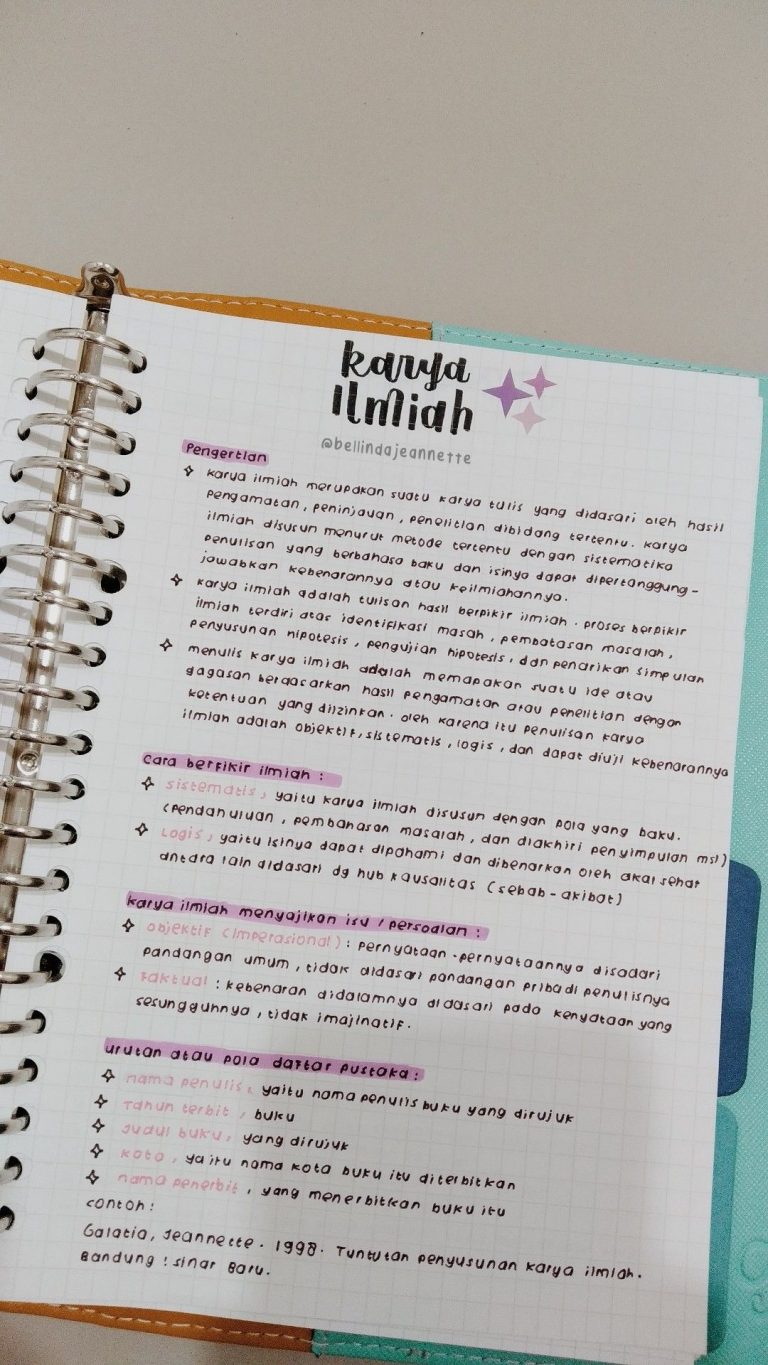 karya
Ilmiah
@bellindajeannette
Pengertian
karya ilmiah merupakan suatu karya tulis yang didasari oleh hasil
pengamatan, peninjauan, penelitian dibidang tertentu. karya
ilmiah disusun menurut metode tertentu dengan sistematika
penulisan yang berbahasa baku dan isinya dapat dipertanggung-
jawabkan kebenarannya atau keilmiahannya.
karya ilmiah adalah tulisan hasil berpikir ilmiah. proses berpikir
ilmiah terdiri atas identifikasi masah, pembatasan masalah,
penyusunan hipotesis, pengujian hipotesis, dan penarikan simpulan
menulis karya ilmiah adalah memapakan suatu ide atau
gagasan berdasarkan hasil pengamatan atau penelitian dengan
ketentuan yang diizinkan. oleh karena itu penulisan karya
ilmiah adalah objektif, sistematis, logis, dan dapat diuji kebenarannya
cara berfikir ilmiah :
sistematis, yaitu karya ilmiah disusun dengan pola yang baku.
(pendahuluan, pembahasan masalah, dan diakhiri penyimpulan msl)
Logis, yaitu isinya dapat dipahami dan dibenarkan oleh akal sehat
antara lain didasari dg hub kausalitas (sebab-akibat)
karya ilmiah menyajikan isu / persoalan :
objektif (imperasional) : pernyataan-pernyataannya disadari
pandangan umum, tidak didasari pandangan pribadi penulisnya
Faktual : kebenaran didalamnya didasari pada kenyataan yang
sesungguhnya, tidak imajinatif.
urutan atau pola daftar pustaka :
nama penulis, yaitu nama penulis buku yang dirujuk
Tahun terbit, buku
Judul buku, yang dirujuk
kota, yaitu nama kota buku itu diterbitkan
nama penerbit, yang menerbitkan buku itu
contoh :
Galatia, Jeannette. 1998. Tuntutan penyusunan karya ilmiah.
Bandung : sinar Baru.